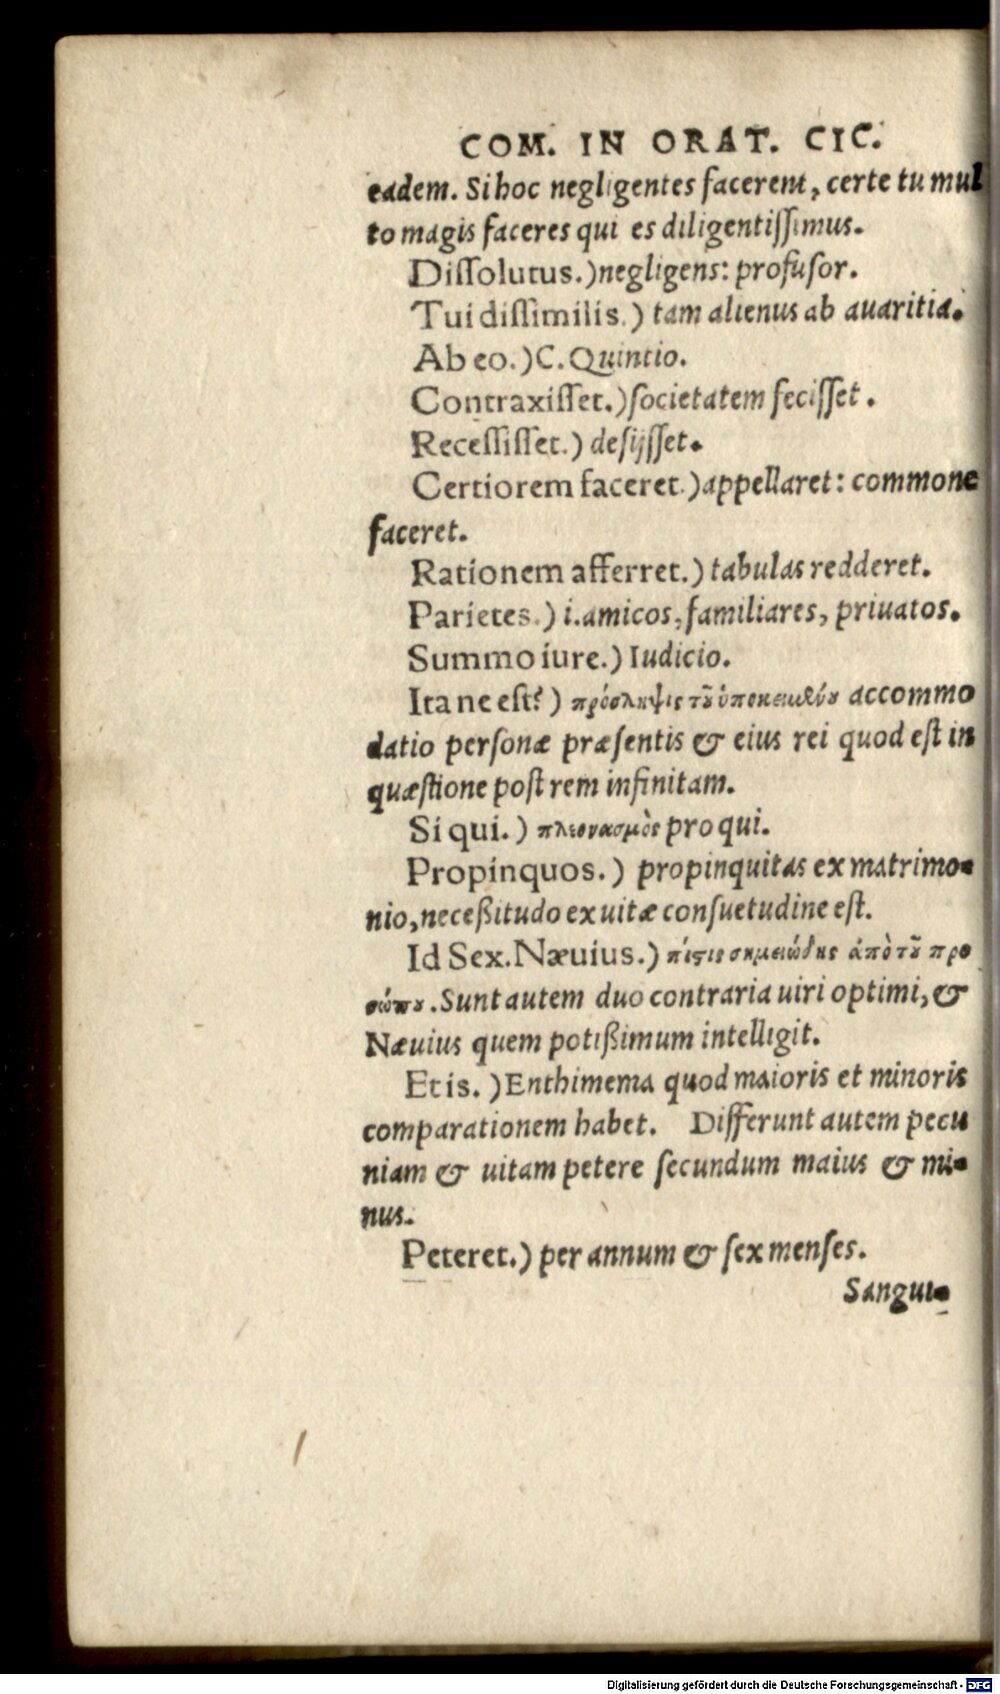 COM. IN ORAT. CIC.
eadem. Si hoc negligentes facerent, certe tu mul
to magis faceres qui es diligentißimus.
Dissolutus.) negligens: profusor.
Tui dissimilis.) tam alienus ab auaritia.
Ab eo.) C. Quintio.
Contraxisset.) societatem fecisset.
Recessisset.) desijsset.
Certiorem faceret.) appellaret: commone
faceret.
Rationem afferret.) tabulas redderet.
Parietes.) i. amicos, familiares, priuatos.
Summo iure.) Iudicio.
Ita ne est?) πρόσληψις τοῦ ὑποκειμένου accommo
datio personæ præsentis & eius rei quod est in
quæstione post rem infinitam.
Si qui.) πλεονασμὸς pro qui.
Propinquos.) propinquitas ex matrimo-
nio, neceßitudo ex uitæ consuetudine est.
Id Sex. Næuius.) πίστις σημειώδης ἀπὸ τοῦ προ
σώπου. Sunt autem duo contraria uiri optimi, &
Næuius quem potißimum intelligit.
Et is.) Enthimema quod maioris et minoris
comparationem habet. Differunt autem pecu
niam & uitam petere secundum maius & mi-
nus.
Peteret.) per annum & sex menses.
Sangui-
Digitalisierung gefördert durch die Deutsche Forschungsgemeinschaft - DFG